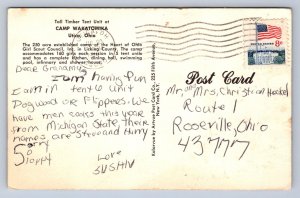 Tall Timber Tent Unit at
CAMP WAKATOMIKA
Utica, Ohio
The 250 acre established camp of the Heart of Ohio
Girl Scout Council, Inc. in Licking County. The camp
accommodates 160 girls each session in 5 tent units
and has a complete kitchen, dining hall, swimming
pool, infirmary and shower house.
Dear Grammy,
I am having fun
I am in tent 6 unit
Dogwood or Flippers. We
have men safies this year
from Michigan State, there
names are Steve and Harry
Sorry
so
sloppy
Love
SUSHIV
Published by Artvue Post Card Co. 225 Fifth Avenue,
New York, N.Y.
Post Card
8c
Mr. Mrs. Christian Henkel
Route 1
Roseville, Ohio
43777